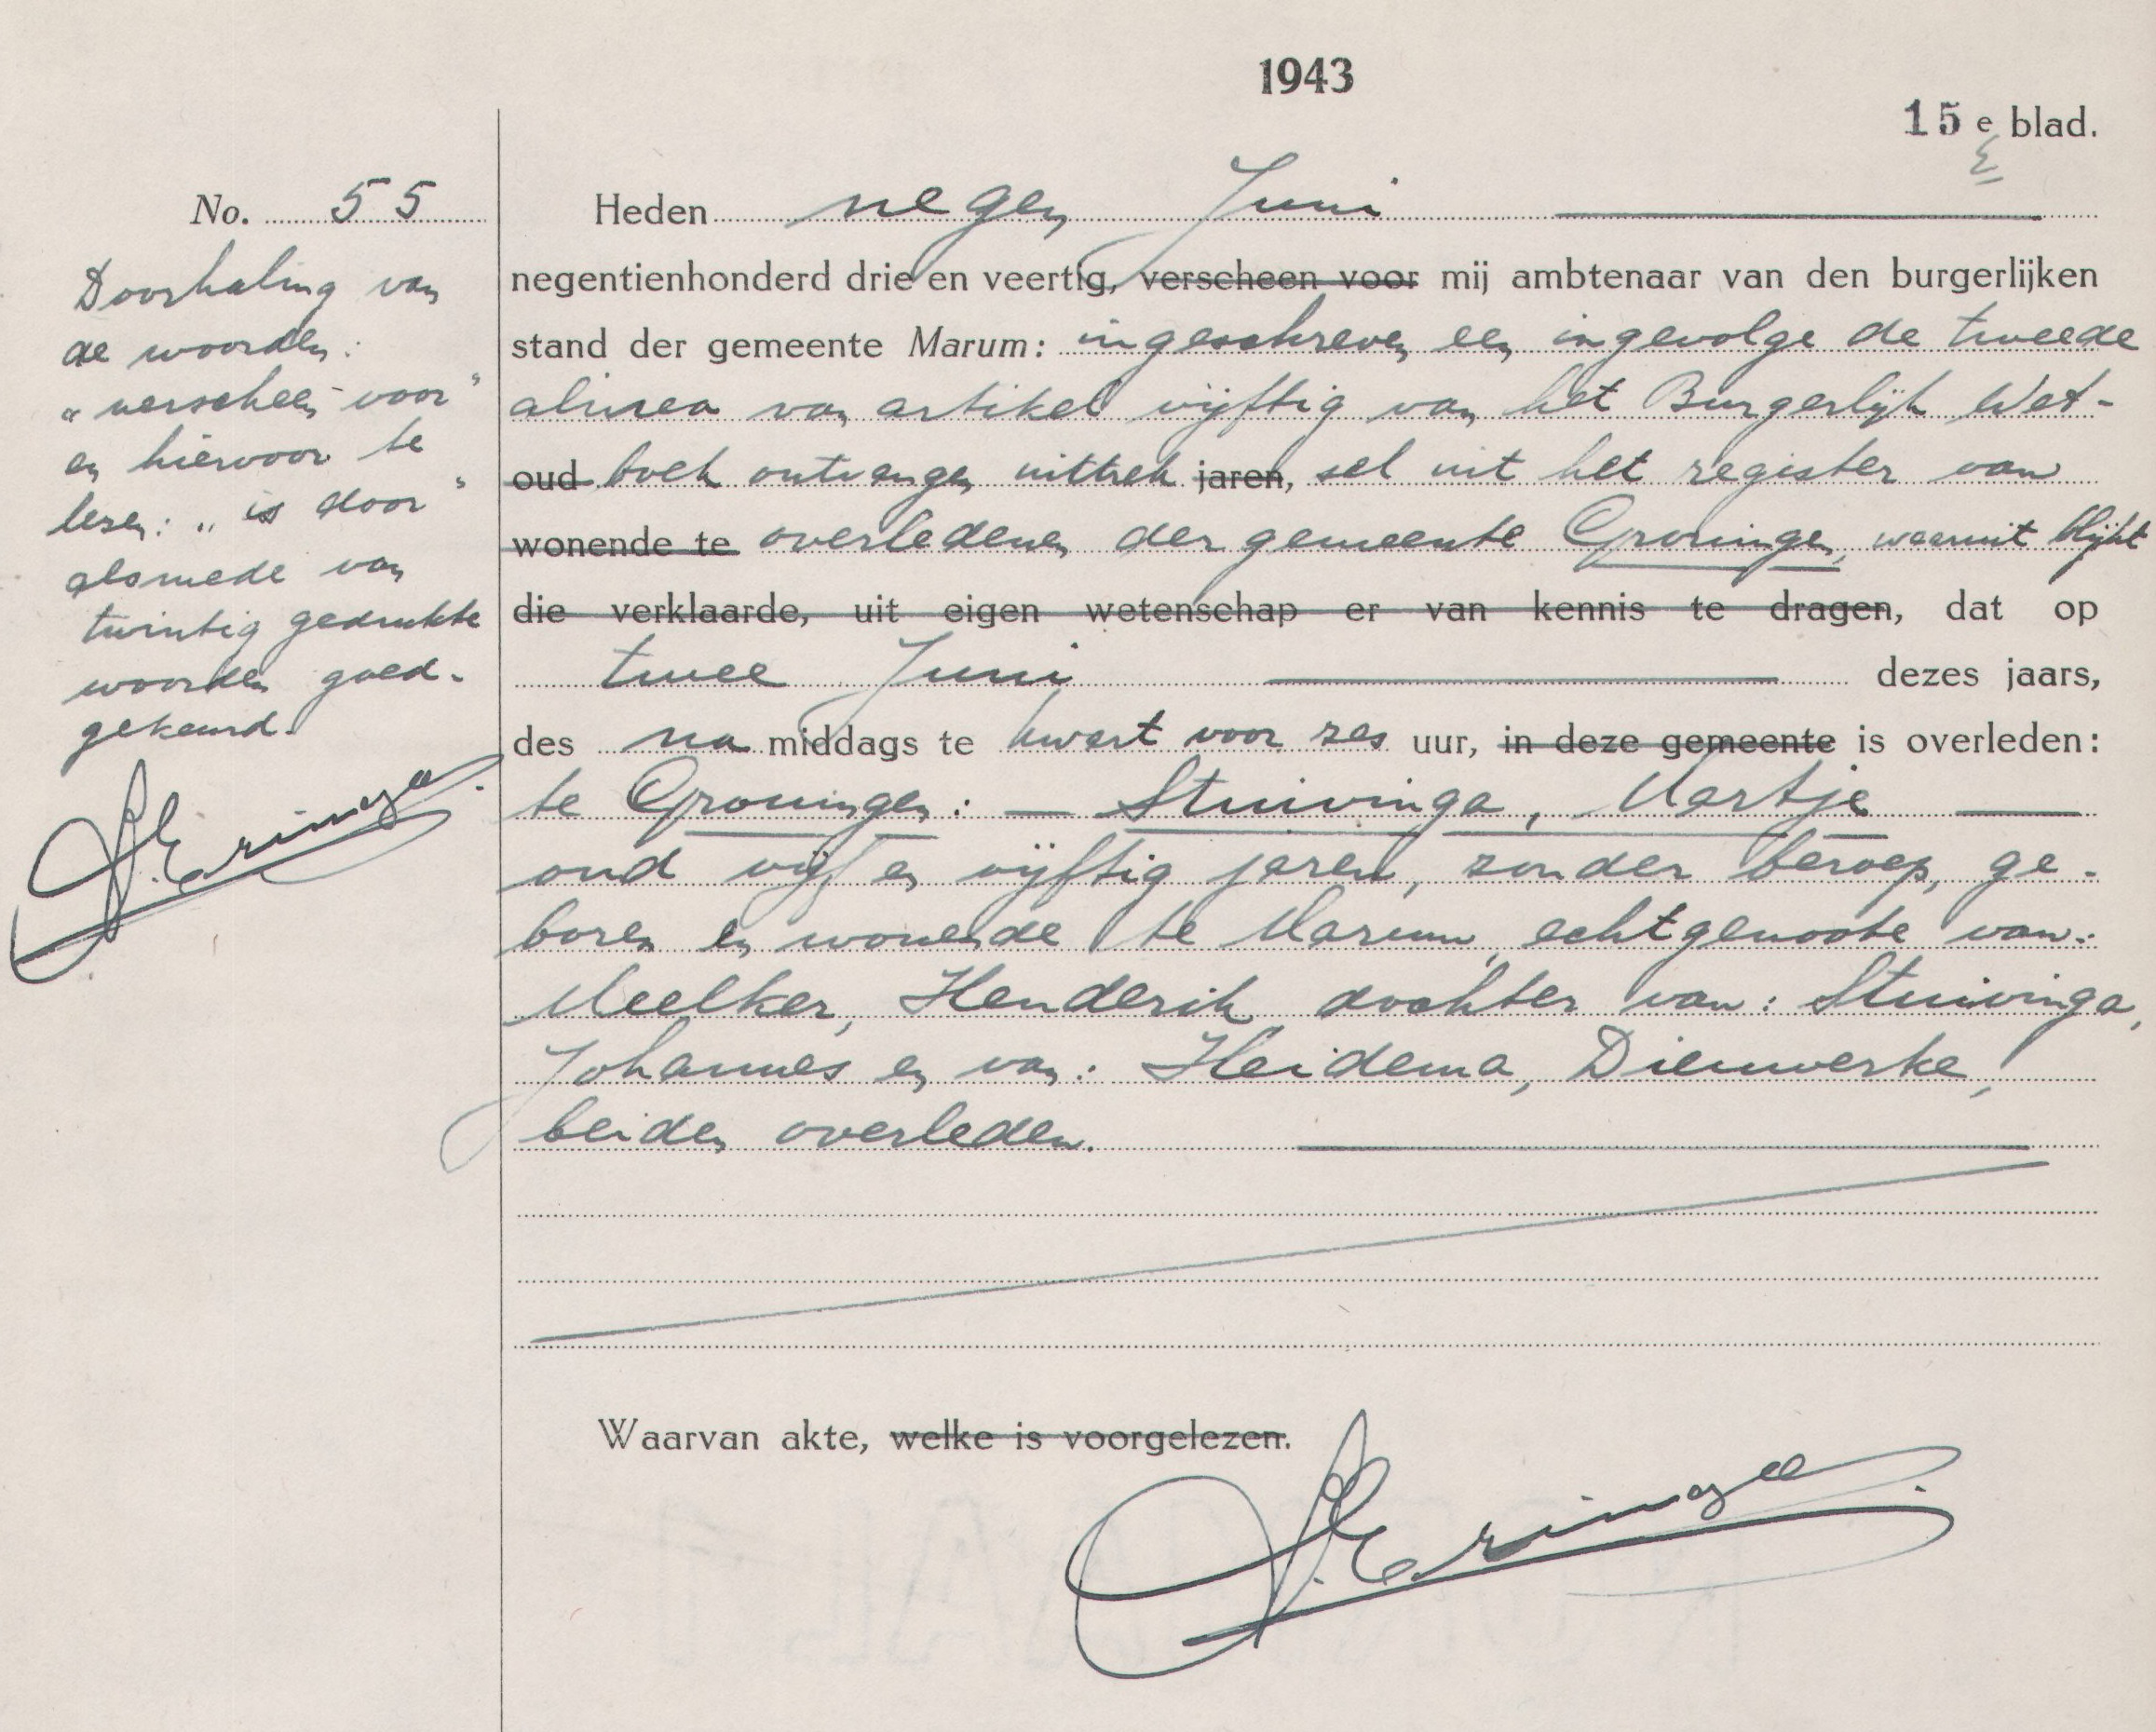 1943
15e blad.
No. 55
Heden negen Juni
negentienhonderd drie en veertig, verscheen voor mij ambtenaar van den burgerlijken
stand der gemeente Marum: ingeschreven een ingevolge de tweede
alinea van artikel vijftig van het Burgerlijk Wet-
oud boek ontvangen uittrek jaren, sel uit het register van
wonende te overledenen der gemeente Groningen, waaruit blijkt
die verklaarde, uit eigen wetenschap er van kennis te dragen, dat op
twee Juni dezes jaars,
des na middags te kwart voor zes uur, in deze gemeente is overleden:
te Groningen: — Stuivinga, Martje —
oud vijf en vijftig jaren, zonder beroep, ge-
boren en wonende te Marum, echtgenoote van:
Meelker, Henderik, dochter van: Stuivinga,
Johannes en van: Heidema, Dieuwerke,
beiden overleden.
Waarvan akte, welke is voorgelezen.
Eringa
Doorhaling van
de woorden:
„verscheen voor"
en hiervoor te
lezen: „is door"
alsmede van
twintig gedrukte
woorden goed-
gekeurd.
Eringa